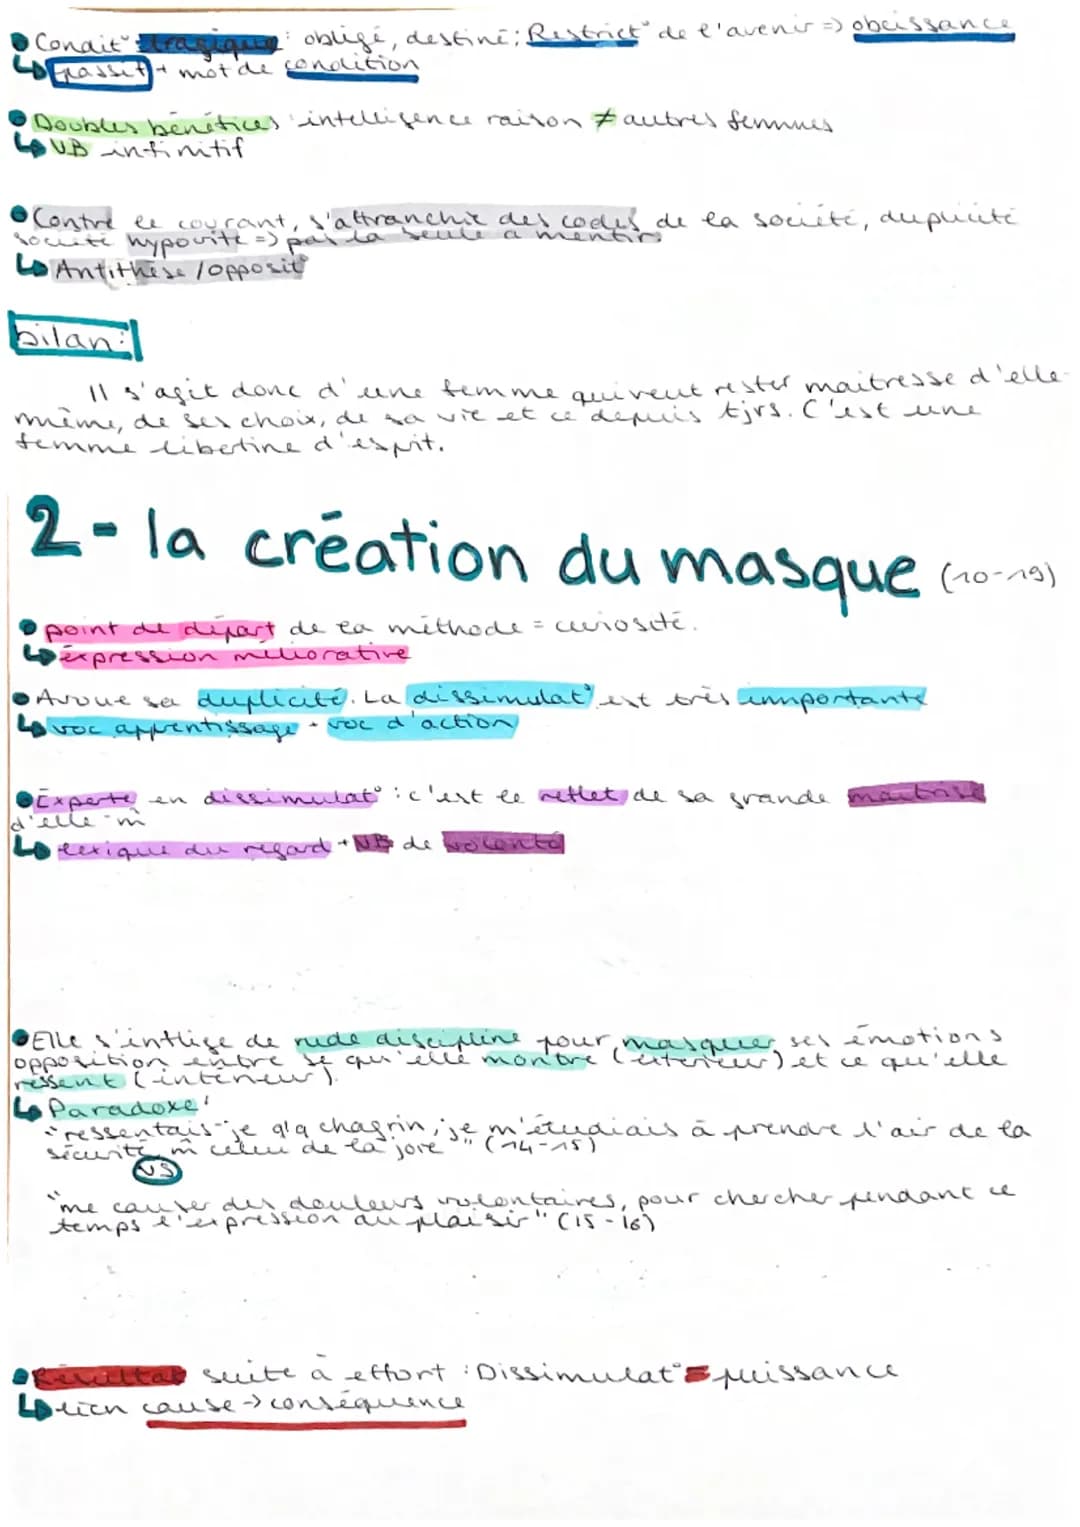 Condit° tragique : obligé, destiné ; Restrict° de l'avenir => obeissance
↳ passif + mot de condition
Doubles bénéfices : intelligence raison ≠ autres femmes
↳ VB infinitif
Contre le courant, s'affranchie des codes de la société, duplicité
société hypovite => pas la seule a mentir
↳ Antithèse / opposit°
bilan :
Il s'agit donc d'une femme qui veut rester maitresse d'elle-
même, de ses choix, de sa vie et ce depuis tjrs. C'est une
femme libertine d'esprit.
2- la création du masque (10-19)
point de départ de la méthode = curiosité.
↳ expression méliorative
Avoue sa duplicité. La dissimulat° est très importante
↳ voc apprentissage + voc d'action
Experte en dissimulat° : c'est le reflet de sa grande maitrise
d'elle-m̂
↳ lexique du regard + VB de volonté
Elle s'inflige de rude discipline pour masquer ses émotions
opposition entre se qu'elle montre (extérieur) et ce qu'elle
ressent (intérieur).
↳ Paradoxe :
"ressentais-je q'q chagrin, je m'étudiais à prendre l'air de la
sécurité, m̂ celui de la joie" (14-15)
VS
"me causer des douleurs volontaires, pour chercher pendant ce
temps l'expression du plaisir" (15-16)
Résultat suite à effort : Dissimulat° = puissance
↳ lien cause → conséquence